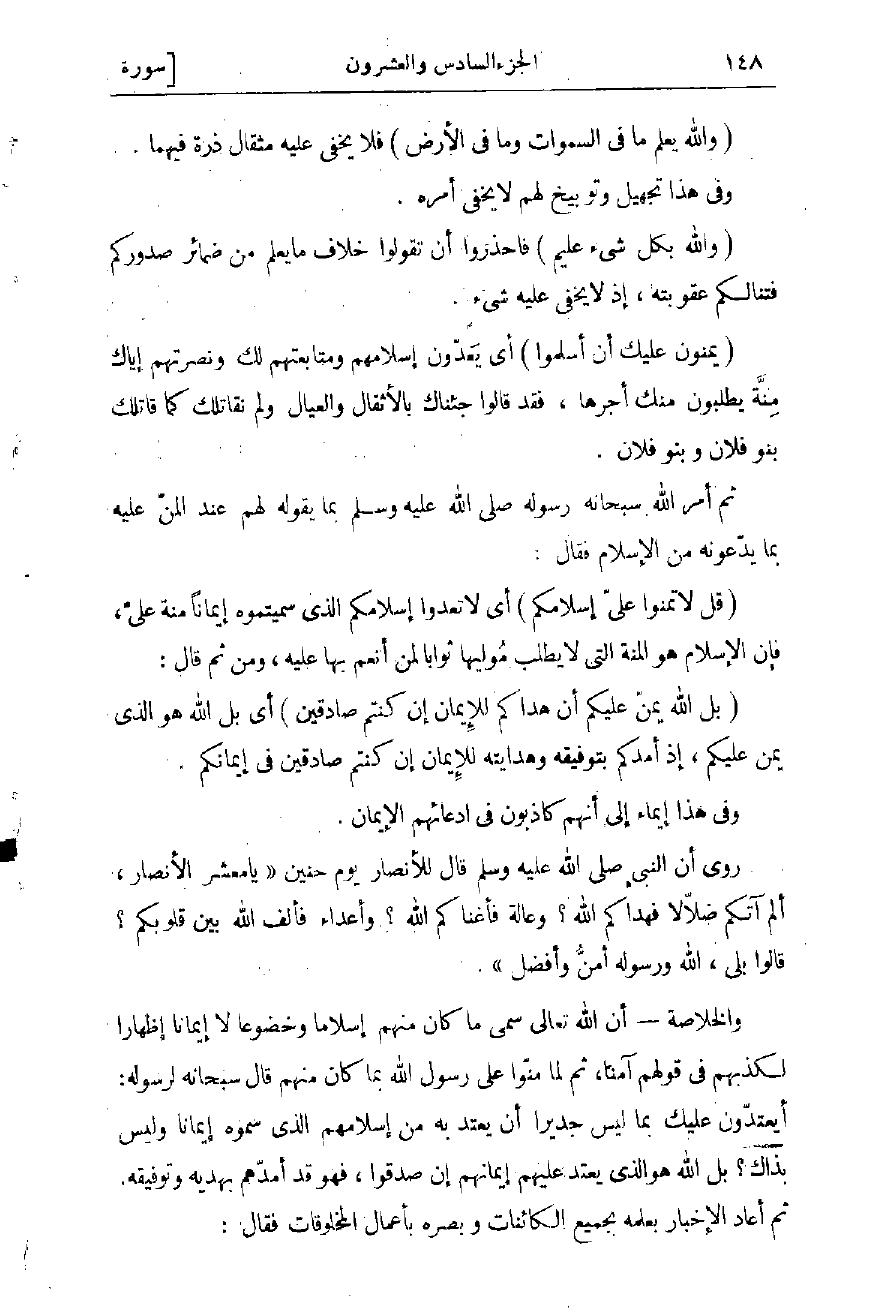 ١٤٨ الجزء السادس والعشرون [سورة
( والله يعلم ما فى السموات وما فى الأرض ) فلا يخفى عليه مثقال ذرة فيهما .
وفى هذا تجهيل وتوبيخ لهم لا يخفى أمره .
( والله بكل شىء عليم ) فاحذروا أن تقولوا خلاف مايعلم من ضمائر صدوركم
فتنالكم عقوبته ، إذ لا يخفى عليه شىء .
( يمنون عليك أن أسلموا ) أى يَعَدّون إسلامهم ومتابعتهم لك ونصرتهم إياك
مِنَّة يطلبون منك أجرها ، فقد قالوا جئناك بالأثقال والعيال ولم نقاتلك كما قاتلك
بنو فلان وبنو فلان .
ثم أمر الله سبحانه رسوله صلى الله عليه وسلم بما يقوله لهم عند المنّ عليه
بما يدّعونه من الإسلام فقال :
( قل لاتمنوا علىّ إسلامكم ) أى لاتعدوا إسلامكم الذى سميتموه إيماناً منة علىّ ،
فإن الإسلام هو المنة التى لا يطلب مُوليها ثوابا لمن أنعم بها عليه ، ومن ثم قال :
( بل الله يمنّ عليكم أن هداكم للإيمان إن كنتم صادقين ) أى بل الله هو الذى
يمن عليكم ، إذ أمدكم بتوفيقه وهدايته للإيمان إن كنتم صادقين فى إيمانكم .
وفى هذا إيماء إلى أنهم كاذبون فى ادعائهم الإيمان .
روى أن النبى صلى الله عليه وسلم قال للأنصار يوم حنين « يامعشر الأنصار ،
ألم آتكم ضلّالا فهداكم الله ؟ وعالة فأغناكم الله ؟ وأعداء فألف الله بين قلوبكم ؟
قالوا بلى ، الله ورسوله أمنُّ وأفضل » .
والخلاصة — أن الله تعالى سمى ما كان منهم إسلاما وخضوعا لا إيمانا إظهارا
لكذبهم فى قولهم آمنا ، ثم لما منّوا على رسول الله بما كان منهم قال سبحانه لرسوله :
أيعتدّون عليك بما ليس جديرا أن يعتد به من إسلامهم الذى سموه إيمانا وليس
بذاك ؟ بل الله هوالذى يعتد عليهم إيمانهم إن صدقوا ، فهو قد أمدّهم بهديه وتوفيقه .
ثم أعاد الإخبار بعلمه بجميع الكائنات وبصره بأعمال المخلوقات فقال :